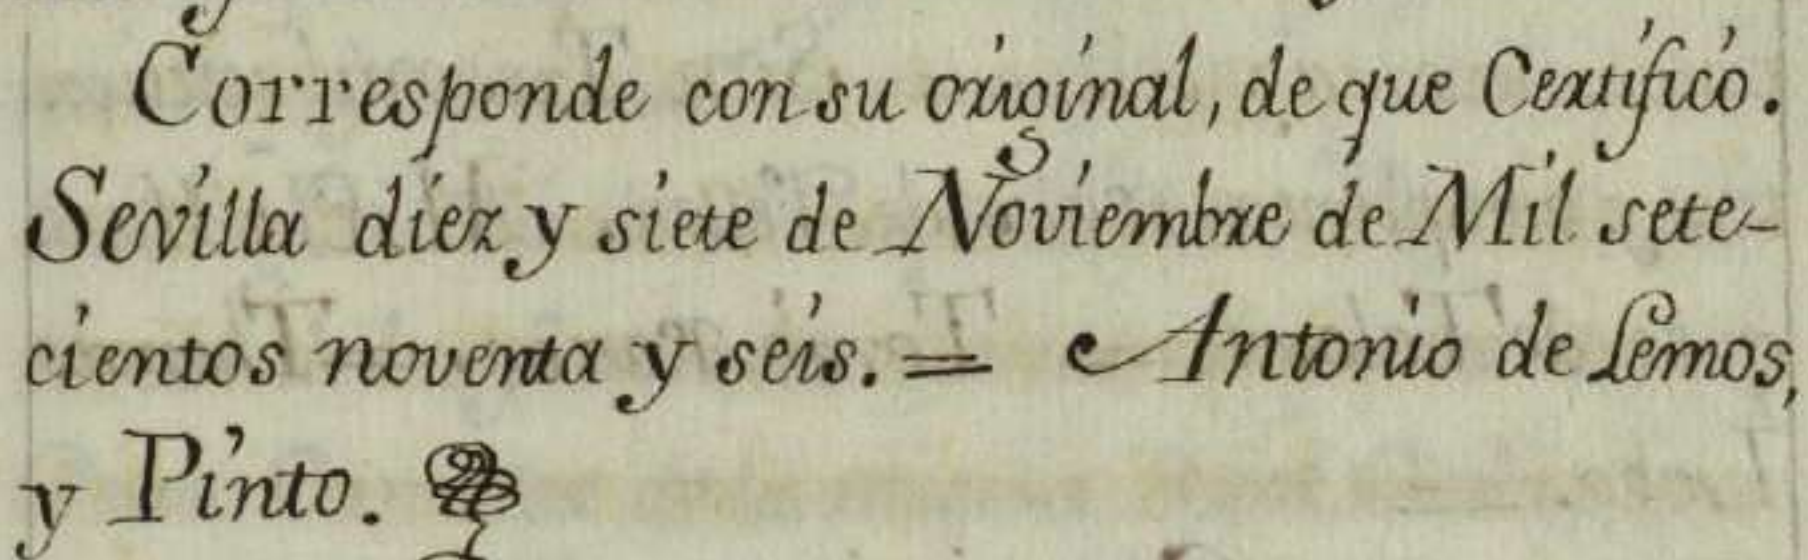 Corresponde con su original, de que Certifico.
Sevilla diez y siete de Noviembre de Mil sete-
cientos noventa y seis. = Antonio de Lemos,
y Pinto.